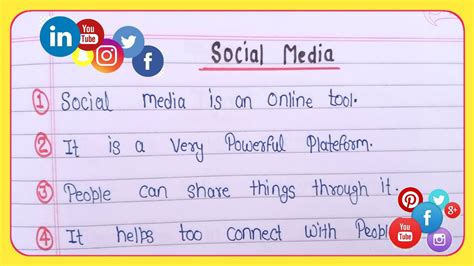 in
You
Tube
Social Media
1 Social media is an Online tool.
2 It is a Very Powerful Plateform.
3 People can share things through it.
4 It helps too Connect with Peopl
You
Tube
g+